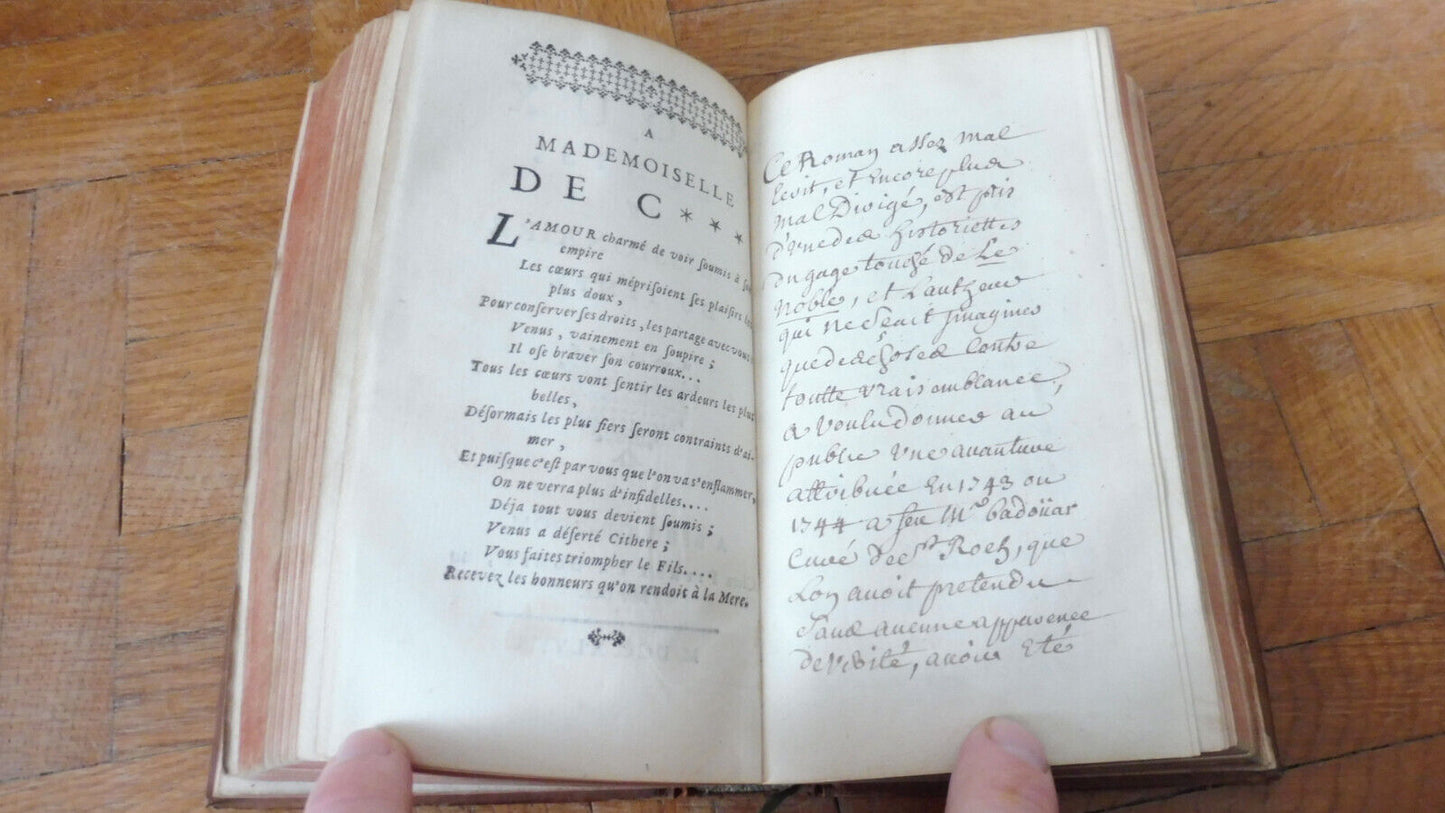 A
MADEMOISELLE
DE C***
L'AMOUR charmé de voir ſoumis à ſon
empire
Les cœurs qui mépriſoient ſes plaiſirs les
plus doux,
Pour conſerver ſes droits, les partage avec vous
Venus, vainement en ſoupire;
Il oſe braver ſon courroux...
Tous les cœurs vont ſentir les ardeurs les plus
belles,
Déſormais les plus fiers ſeront contraints d'ai-
mer,
Et puiſque c'eſt par vous que l'on va s'enflammer,
On ne verra plus d'infidelles....
Déja tout vous devient ſoumis;
Venus a déſerté Cithere;
Vous faites triompher le Fils....
Recevez les honneurs qu'on rendoit à la Mere.
Ce Roman assez mal
Ecrit, et Encore plus
mal Divigé, est pris
d'une des historiettes
du gage touché de Le
Noble, et L'autheur
qui ne sçait Imaginer
que des choses Contre
toutte vraisemblance,
a voulu donner au
public une avanture
attribuée En 1743 ou
1744 a feu Mr. badoüar
Curé de St. Roch, que
Lon avoit pretendu
sans aucune apparence
de vérité, avoir Eté